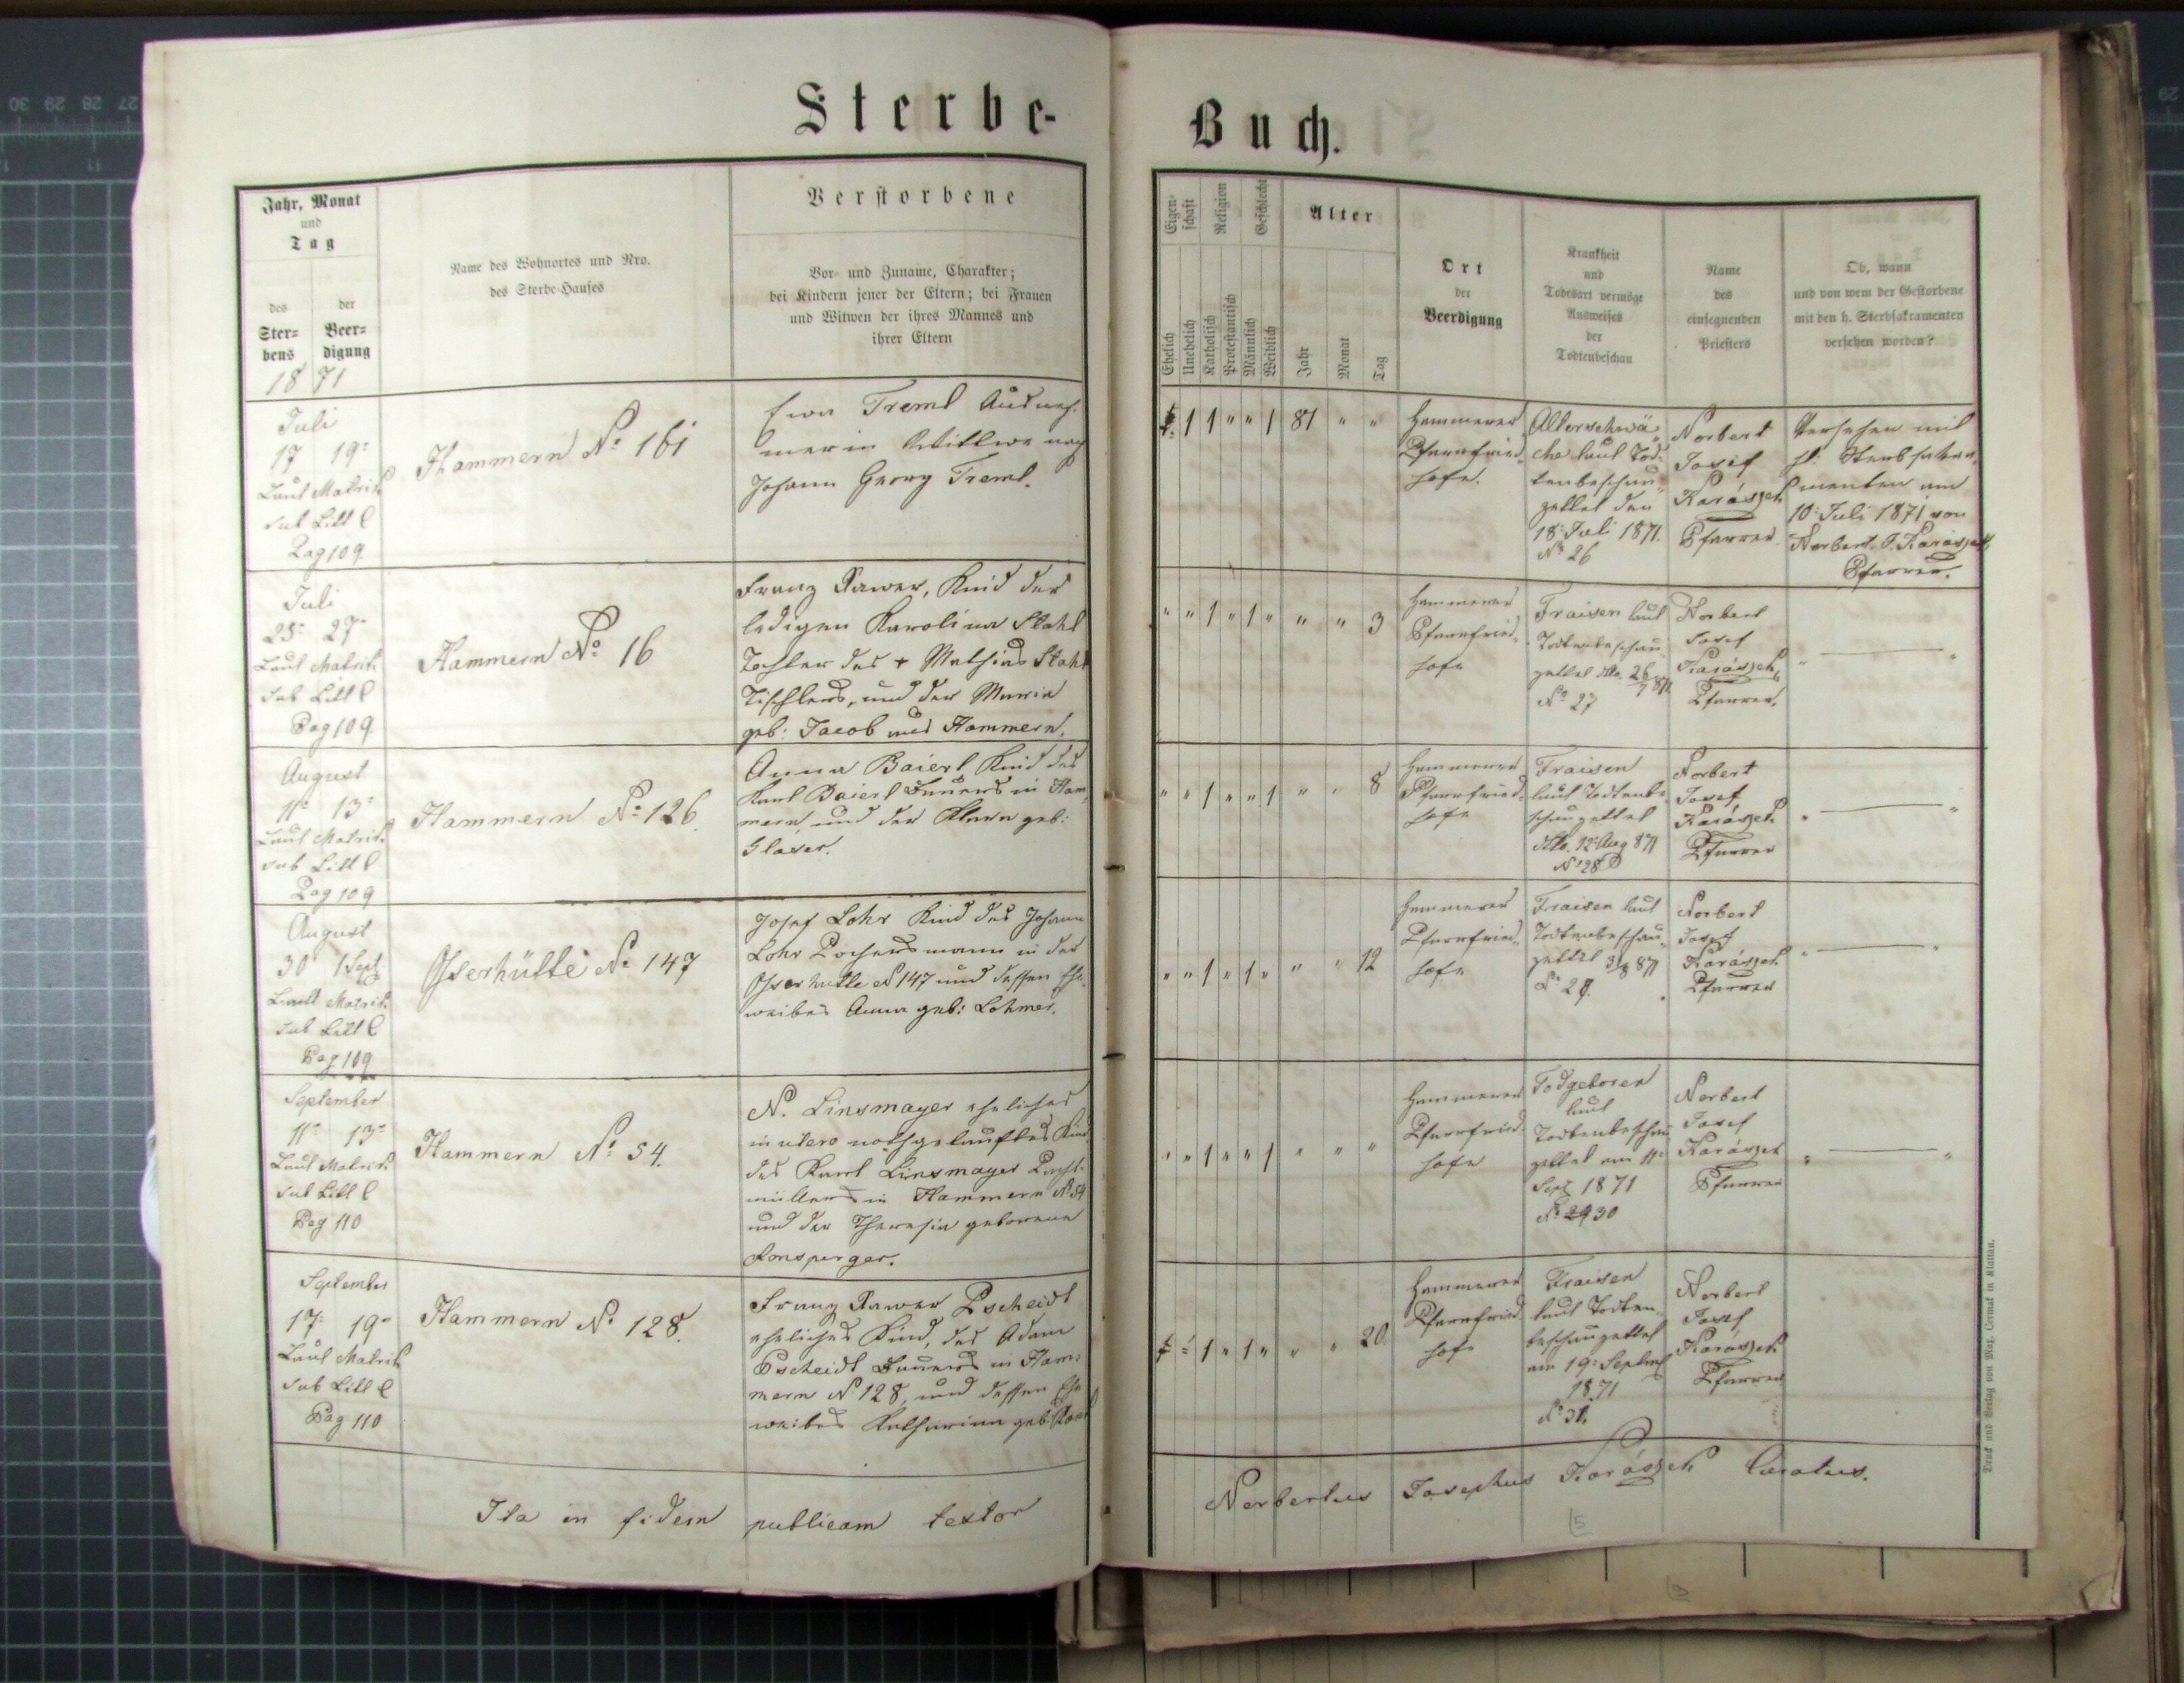 Sterbe-
Buch.
Jahr, Monat
und
Tag
des
Ster-
bens
der
Beer-
digung
1871
Name des Wohnortes und Nro.
des Sterbe-Hauses
Verstorbene
Vor- und Zuname, Charakter;
bei Kindern jener der Eltern; bei Frauen
und Witwen der ihres Mannes und
ihrer Eltern
Eigen-
schaft
Religion
Geschlecht
Alter
Ehelich
Unehelich
Katholisch
Protestantisch
Männlich
Weiblich
Jahr
Monat
Tag
Ort
der
Beerdigung
Krankheit
und
Todesart vermöge
Ausweises
der
Todtenbeschau
Name
des
einsegnenden
Priesters
Ob, wann
und von wem der Gestorbene
mit den h. Sterbsakramenten
versehen worden?
Juli
17 19.
Laut Matrik
sub Litt C
Pag 109
Hammern No. 161
Eva Treml Ausneh-
merin Wittwe nach
Johann Georg Treml.
1 1 " " 1 87 " "
Hammerer
Pfarrfried-
hofe.
Altersschwä-
che laut Tod-
tenbeschau-
zettel den
18. Juli 1871.
No 26
Norbert
Josef
Karászek
Pfarrer
Versehen mit
hl. Sterbsakra-
menten am
10. Juli 1871 von
Norbert J. Karászek
Pfarrer.
Juli
25. 27.
Laut Matrik
sub Litt C
Pag 109
Hammern No. 16
Franz Xawer, Kind der
ledigen Karolina Stahl
Tochter des + Mathias Stahl
Tischlers, und der Maria
geb: Jacob aus Hammern.
" " 1 " 1 " " " 3
Hammerer
Pfarrfried-
hofe
Fraisen laut
Todtenbeschau-
zettel dto. 26/7 871
No 27
Norbert
Josef
Karászek
Pfarrer.
" — "
August
11. 13.
Laut Matrik
sub Litt C
Pag 109
Hammern No. 126.
Anna Baierl Kind des
Karl Baierl Bauers in Ham-
mern, und der Klara geb:
Glaser.
" " 1 " " 1 " " 8
Hammerer
Pfarrfried-
hofe
Fraisen
laut Todtenbe-
schauzettel
dto. 12. Aug 871
No 28
Norbert
Josef
Karászek
Pfarrer
" — "
August
30 1 Sept
Laut Matrik
sub Litt C
Pag. 109
Osserhütte No. 147
Josef Lohr Kind des Johann
Lohr Pochersmann in der
Osserhütte No 147 und dessen Ehe-
weibes Anna geb: Lohmer.
" " 1 " 1 " " " 12
Hammerer
Pfarrfried-
hofe
Fraisen laut
Todtenbeschau-
zettel 31/8 871
No 29.
Norbert
Josef
Karászek
Pfarrer
" — "
September
11. 13.
Laut Matrik
sub Litt C
Pag 110
Hammern No. 54.
N. Linsmayer eheliches
in utero nothgetauftes Kind
des Karl Linsmayer Pacht-
müllers in Hammern No 54
und der Theresia geborene
Ronsperger.
" " 1 " " 1 " " "
Hammerer
Pfarrfried-
hofe
Todgeboren
laut
Todtenbeschau
zettel am 11.
Sept 1871
No. 29 30
Norbert
Josef
Karászek
Pfarrer
" — "
September
17. 19.
Laut Matrik
sub Litt C
Pag 110
Hammern No. 128.
Franz Xawer Pscheidt
eheliches Kind, des Adam
Pscheidt Bauers in Ham-
mern No 128, und dessen Ehe
weibes Katharina geb:
1 " 1 " " " 20
Hammerer
Pfarrfried
hofe
Fraisen
laut Todten-
beschauzettel
am 19. Septemb
1871
No. 31.
Norbert
Josef
Karászek
Pfarrer
Ita in fidem publicam testor
Norbertus Josephus Karászek Curatus.
5
Druck und Verlag von Max. Cermak in Klattau.